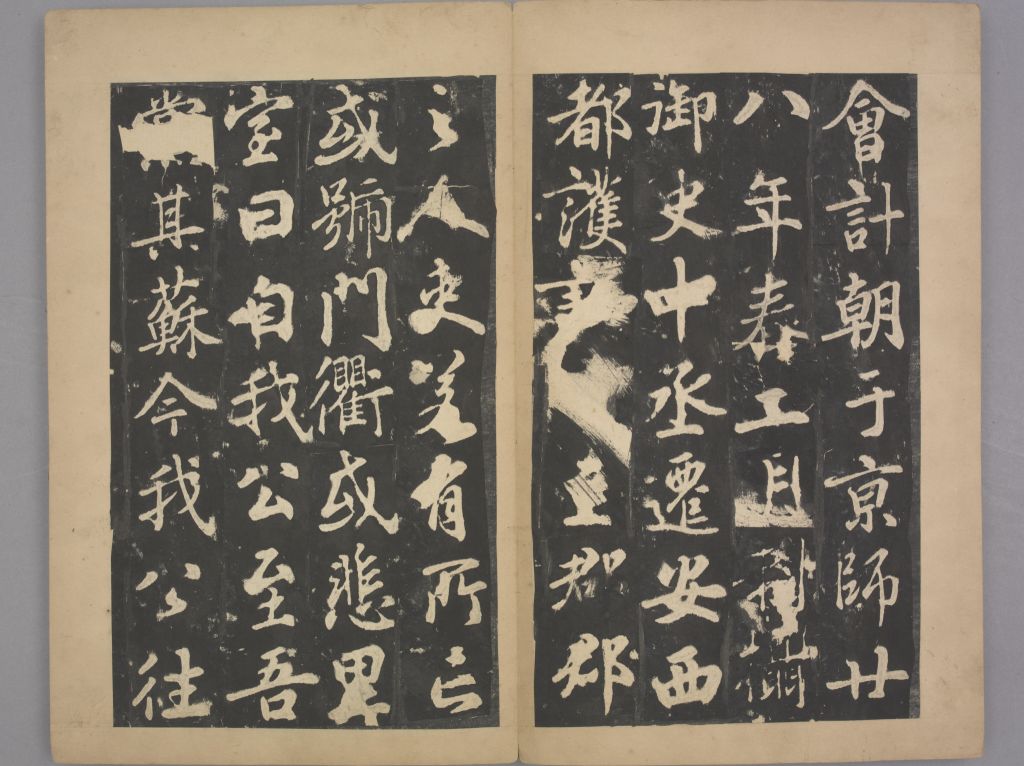 會計朝于京師廿
八年春正月制攝
御史中丞遷安西
都護
郡郡
之人吏若有所亡
或號門衢或悲里
室曰自我公至吾
其蘇今我公往